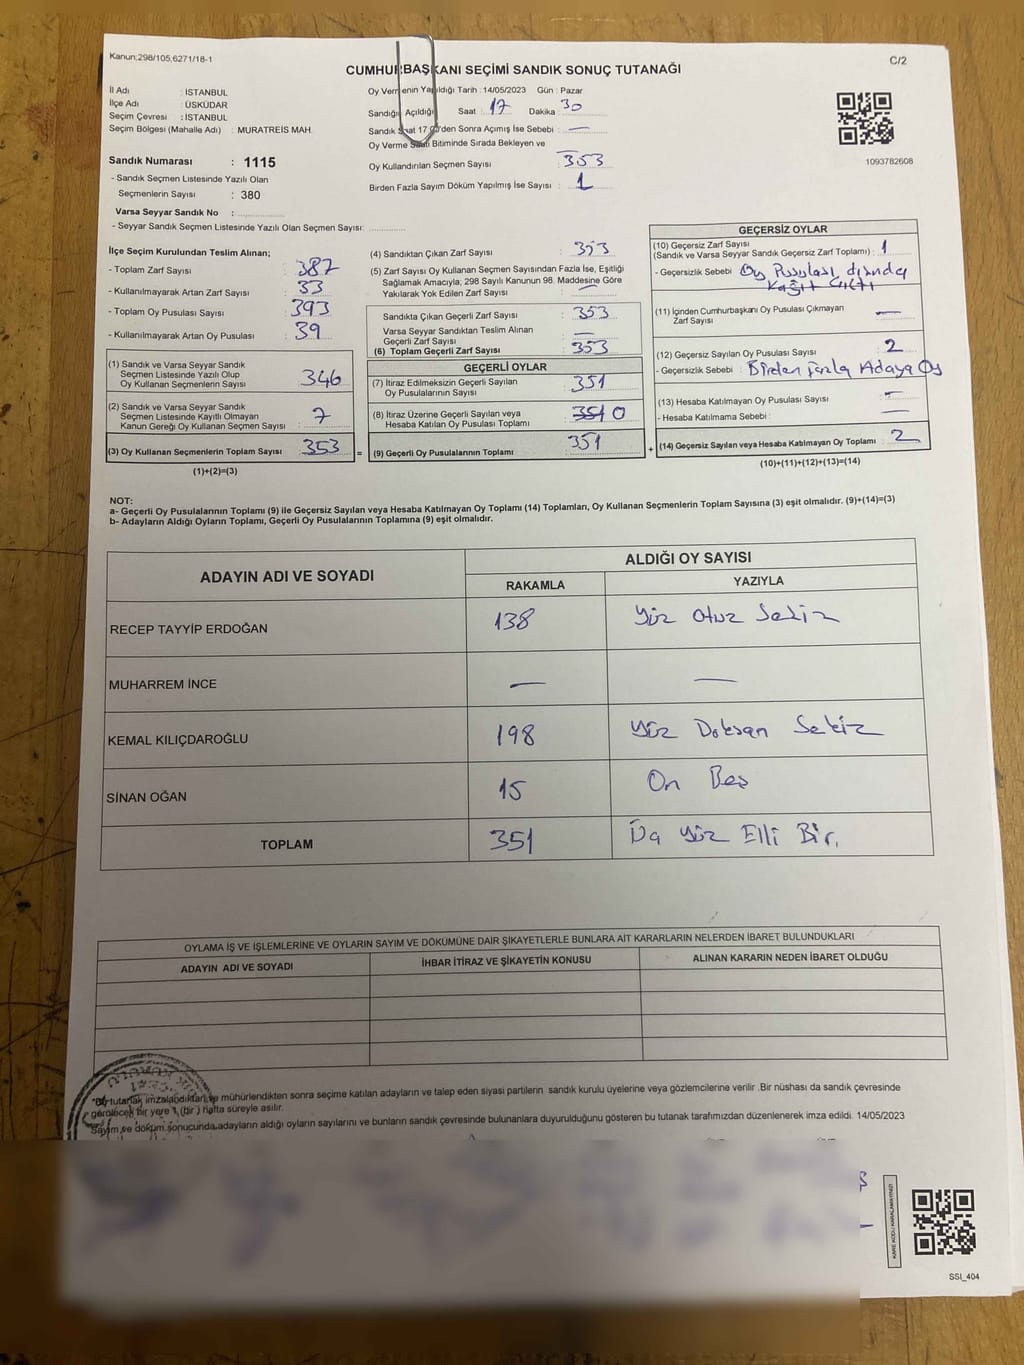 Kanun:298/105,6271/18-1
C/2
CUMHURBAŞKANI SEÇİMİ SANDIK SONUÇ TUTANAĞI
İl Adı : İSTANBUL
İlçe Adı : ÜSKÜDAR
Seçim Çevresi : İSTANBUL
Seçim Bölgesi (Mahalle Adı) : MURATREİS MAH.
Sandık Numarası : 1115
- Sandık Seçmen Listesinde Yazılı Olan
Seçmenlerin Sayısı : 380
Varsa Seyyar Sandık No :
- Seyyar Sandık Seçmen Listesinde Yazılı Olan Seçmen Sayısı:
Oy Vermenin Yapıldığı Tarih : 14/05/2023 Gün : Pazar
Sandığın Açıldığı Saat : 17 Dakika : 30
Sandık Saat 17.00'den Sonra Açımış İse Sebebi : —
Oy Verme Saati Bitiminde Sırada Bekleyen ve —
Oy Kullandırılan Seçmen Sayısı : 353
Birden Fazla Sayım Döküm Yapılmış İse Sayısı : 1
1093782608
İlçe Seçim Kurulundan Teslim Alınan;
- Toplam Zarf Sayısı : 387
- Kullanılmayarak Artan Zarf Sayısı : 33
- Toplam Oy Pusulası Sayısı : 393
- Kullanılmayarak Artan Oy Pusulası : 39
(1) Sandık ve Varsa Seyyar Sandık
Seçmen Listesinde Yazılı Olup
Oy Kullanan Seçmenlerin Sayısı : 346
(2) Sandık ve Varsa Seyyar Sandık
Seçmen Listesinde Kayıtlı Olmayan
Kanun Gereği Oy Kullanan Seçmen Sayısı : 7
(3) Oy Kullanan Seçmenlerin Toplam Sayısı : 353 =
(1)+(2)=(3)
(4) Sandıktan Çıkan Zarf Sayısı : 353
(5) Zarf Sayısı Oy Kullanan Seçmen Sayısından Fazla İse, Eşitliği
Sağlamak Amacıyla; 298 Sayılı Kanunun 98. Maddesine Göre
Yakılarak Yok Edilen Zarf Sayısı : —
Sandıkta Çıkan Geçerli Zarf Sayısı : 353
Varsa Seyyar Sandıktan Teslim Alınan
Geçerli Zarf Sayısı : —
(6) Toplam Geçerli Zarf Sayısı : 353
GEÇERLİ OYLAR
(7) İtiraz Edilmeksizin Geçerli Sayılan
Oy Pusulalarının Sayısı : 351
(8) İtiraz Üzerine Geçerli Sayılan veya
Hesaba Katılan Oy Pusulası Toplamı : 351 0
(9) Geçerli Oy Pusulalarının Toplamı : 351 +
GEÇERSİZ OYLAR
(10) Geçersiz Zarf Sayısı
(Sandık ve Varsa Seyyar Sandık Geçersiz Zarf Toplamı) : 1
- Geçersizlik Sebebi : Oy Pusulası dışında
Kağıt Çıktı
(11) İçinden Cumhurbaşkanı Oy Pusulası Çıkmayan
Zarf Sayısı : —
(12) Geçersiz Sayılan Oy Pusulası Sayısı : 2
- Geçersizlik Sebebi : Birden fazla Adaya Oy
(13) Hesaba Katılmayan Oy Pusulası Sayısı : —
- Hesaba Katılmama Sebebi : —
(14) Geçersiz Sayılan veya Hesaba Katılmayan Oy Toplamı : 2
(10)+(11)+(12)+(13)=(14)
NOT:
a- Geçerli Oy Pusulalarının Toplamı (9) ile Geçersiz Sayılan veya Hesaba Katılmayan Oy Toplamı (14) Toplamları, Oy Kullanan Seçmenlerin Toplam Sayısına (3) eşit olmalıdır. (9)+(14)=(3)
b- Adayların Aldığı Oyların Toplamı, Geçerli Oy Pusulalarının Toplamına (9) eşit olmalıdır.
ADAYIN ADI VE SOYADI ALDIĞI OY SAYISI
RAKAMLA YAZIYLA
RECEP TAYYİP ERDOĞAN 138 Yüz Otuz Sekiz
MUHARREM İNCE — —
KEMAL KILIÇDAROĞLU 198 Yüz Doksan Sekiz
SİNAN OĞAN 15 On Beş
TOPLAM 351 Üç Yüz Elli Bir.
OYLAMA İŞ VE İŞLEMLERİNE VE OYLARIN SAYIM VE DÖKÜMÜNE DAİR ŞİKAYETLERLE BUNLARA AİT KARARLARIN NELERDEN İBARET BULUNDUKLARI
ADAYIN ADI VE SOYADI İHBAR İTİRAZ VE ŞİKAYETİN KONUSU ALINAN KARARIN NEDEN İBARET OLDUĞU
*Bu tutanak imzalandıktan ve mühürlendikten sonra seçime katılan adayların ve talep eden siyasi partilerin sandık kurulu üyelerine veya gözlemcilerine verilir .Bir nüshası da sandık çevresinde
görülecek bir yere 1 (bir ) hafta süreyle asılır.
Sayım ve döküm sonucunda adayların aldığı oyların sayılarını ve bunların sandık çevresinde bulunanlara duyurulduğunu gösteren bu tutanak tarafımızdan düzenlenerek imza edildi. 14/05/2023
KARE KODU KARALAMAYINIZ!
SSI_404